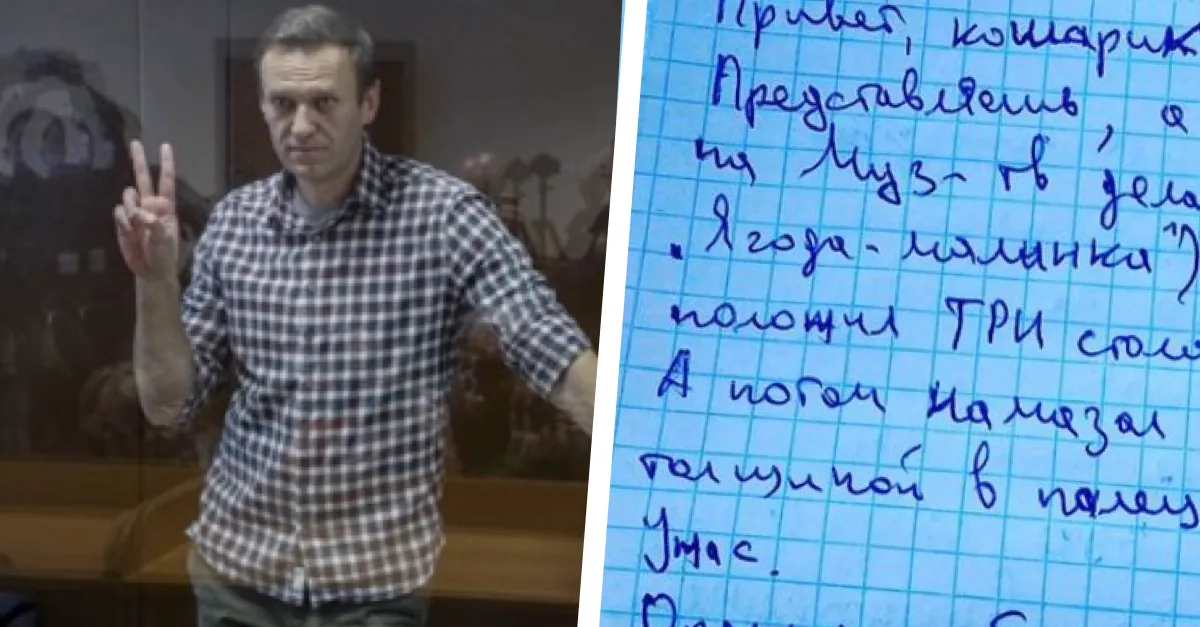 Привет, кошарик
Представляешь, а
на Муз-тв дела
„Ягода-малинка")
положил ТРИ стол
А потом намазал
толщиной в палец
Ужас.